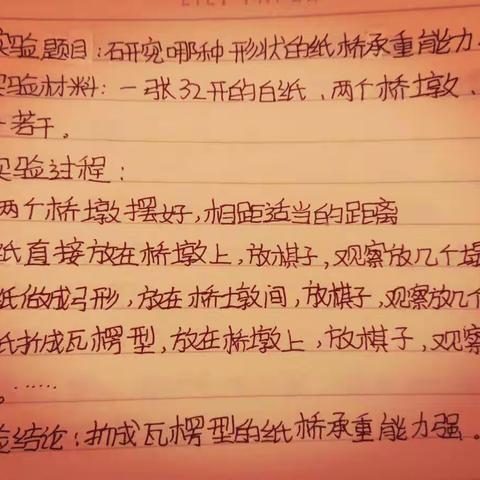 实验题目:研究哪种形状的纸桥承重能力
实验材料:一张32开的白纸、两个桥墩、
若干。
实验过程:
两个桥墩摆好,相距适当的距离
纸直接放在桥墩上,放棋子,观察放几个塌
纸做成弓形,放在桥墩间,放棋子,观察放几个
纸折成瓦楞型,放在桥墩上,放棋子,观察
。……
验结论:折成瓦楞型的纸桥承重能力强。